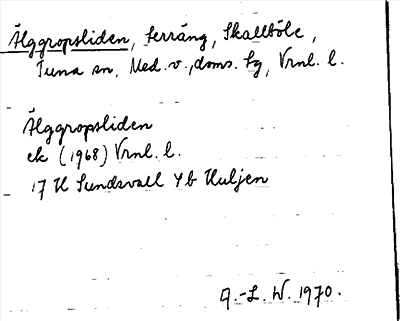 Älggropsliden, terräng, Skallböle,
Tuna sn, Med. v., doms. sg, Vrnl. l.
Älggropsliden
ek (1968) Vrnl. l.
17 H Sundsvall 4b Huljen
A.-L. W. 1970.